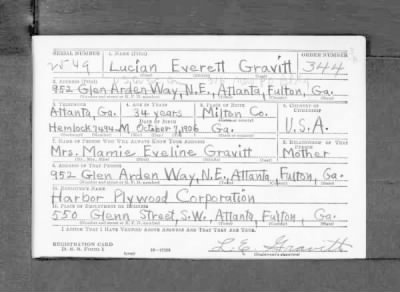 SERIAL NUMBER 1. NAME (Print) ORDER NUMBER
Lucian Everett Gravitt 344
(First) (Middle) (Last)
2. ADDRESS (Print)
952 Glen Arden Way, N.E., Atlanta, Fulton, Ga.
3. TELEPHONE 4. AGE IN YEARS 5. PLACE OF BIRTH 6. COUNTRY OF CITIZENSHIP
Atlanta, Ga. 34 years Milton Co.
DATE OF BIRTH
Hemlock 7494-M October 7, 1906 Ga. U.S.A.
7. NAME OF PERSON WHO WILL ALWAYS KNOW YOUR ADDRESS 8. RELATIONSHIP OF THAT PERSON
Mrs. Mamie Eveline Gravitt Mother
9. ADDRESS OF THAT PERSON
952 Glen Arden Way, N.E., Atlanta, Fulton, Ga.
10. EMPLOYER'S NAME
Harbor Plywood Corporation
11. PLACE OF EMPLOYMENT OR BUSINESS
550 Glenn Street, S.W., Atlanta, Fulton, Ga.
I AFFIRM THAT I HAVE VERIFIED ABOVE ANSWERS AND THAT THEY ARE TRUE.
REGISTRATION CARD
D. S. S. Form 1
L. E. Gravitt
(Registrant's signature)